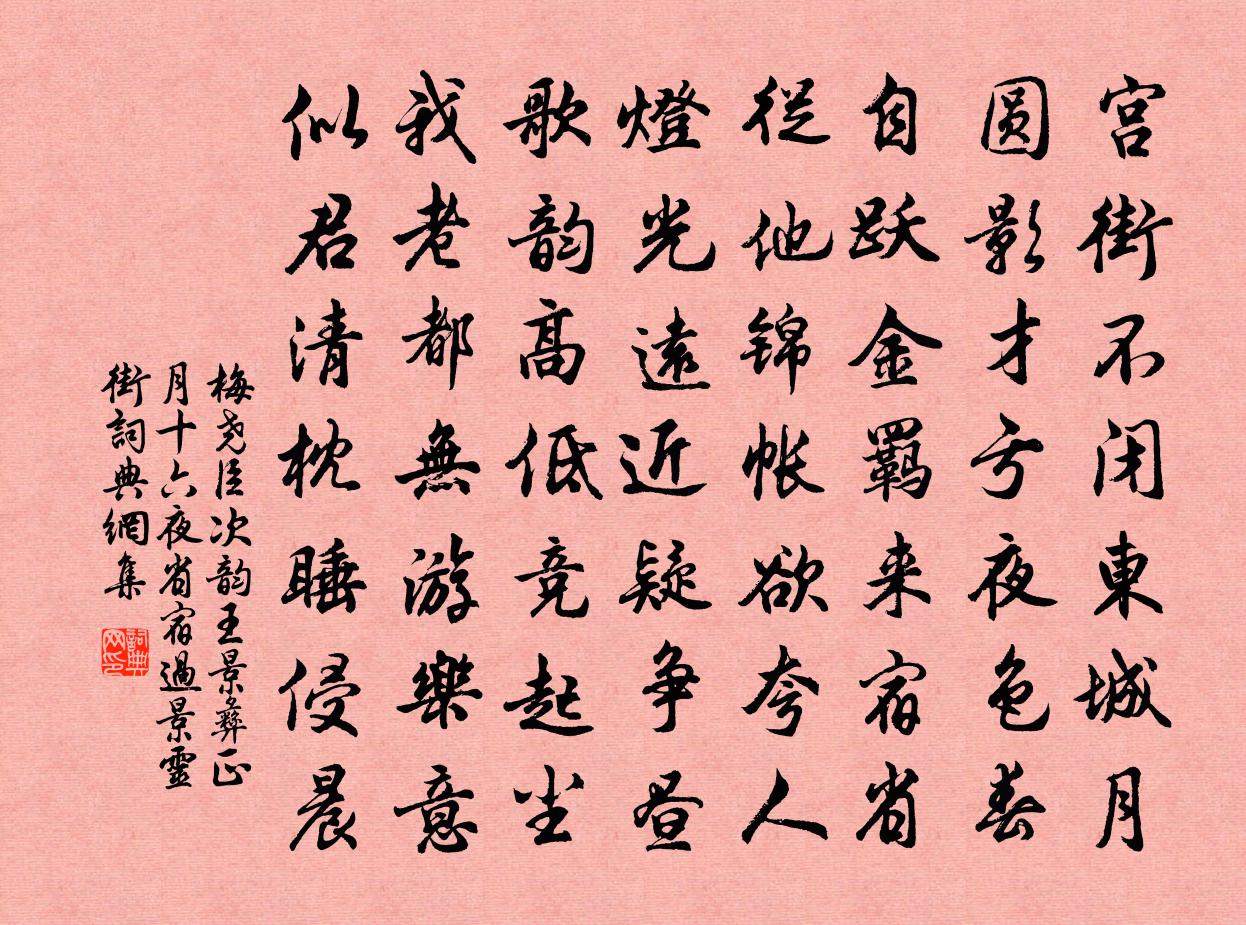 宫街不闭東城月
圆影才亏夜色春
自跃金羁来宿省
従他锦帐欲夸人
燈光遠近疑争昼
歌韵高低竞起尘
我老都無游樂意
似君清枕睡侵晨
梅尧臣次韵王景彝正
月十六夜省宿過景靈
街詞典網集
詞典网印